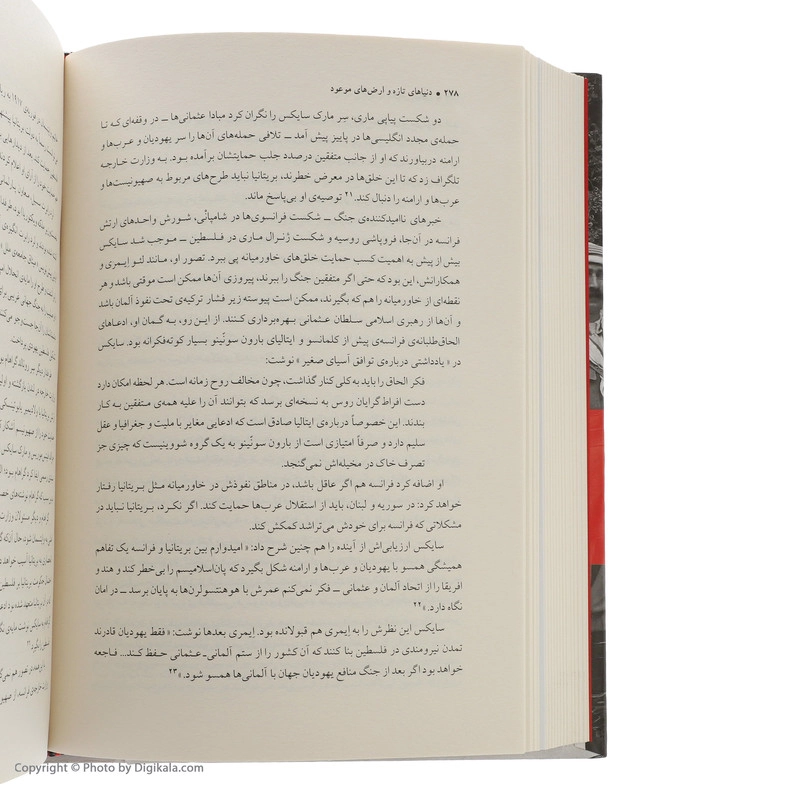 ۲۷۸ ● دنیاهای تازه و ارض‌های موعود
دو شکست پیاپی ماری، سِر مارک سایکس را نگران کرد مبادا عثمانی‌ها ــ در وقفه‌ای که تا
حمله‌ی مجدد انگلیسی‌ها در پاییز پیش آمد ــ تلافی حمله‌های آن‌ها را سر یهودیان و عرب‌ها و
ارامنه دربیاورند که او از جانب متفقین درصدد جلب حمایتشان برآمده بود. به وزارت خارجه
تلگراف زد که تا این خلق‌ها در معرض خطرند، بریتانیا نباید طرح‌های مربوط به صهیونیست‌ها و
عرب‌ها و ارامنه را دنبال کند.۲۱ توصیه‌ی او بی‌پاسخ ماند.
خبرهای ناامیدکننده‌ی جنگ ــ شکست فرانسوی‌ها در شامپانْی، شورش واحدهای ارتش
فرانسه در آن‌جا، فروپاشی روسیه و شکست ژنرال ماری در فلسطین ــ موجب شد سایکس
بیش از پیش به اهمیت کسب حمایت خلق‌های خاورمیانه پی ببرد. تصور او، مانند لئو اِیمری و
همکارانش، این بود که حتی اگر متفقین جنگ را ببرند، پیروزی آن‌ها ممکن است موقتی باشد و هر
نقطه‌ای از خاورمیانه را هم که بگیرند، ممکن است پیوسته زیر فشار ترکیه‌ی تحت نفوذ آلمان باشد
و آن‌ها از رهبری اسلامی سلطان عثمانی بهره‌برداری کنند. از این رو، به گمان او، ادعاهای
الحاق‌طلبانه‌ی فرانسه‌ی پیش از کلمانسو و ایتالیای بارون سونّینو بسیار کوته‌فکرانه بود. سایکس
در «یادداشتی درباره‌ی توافق آسیای صغیر» نوشت:
فکر الحاق را باید به کلی کنار گذاشت، چون مخالف روح زمانه است. هر لحظه امکان دارد
دست افراط‌گرایان روس به نسخه‌ای برسد که بتوانند آن را علیه همه‌ی متفقین به کار
بندند. این خصوصاً درباره‌ی ایتالیا صادق است که ادعایی مغایر با ملیت و جغرافیا و عقل
سلیم دارد و صرفاً امتیازی است از بارون سونّینو به یک گروه شووینیست که چیزی جز
تصرف خاک در مخیله‌اش نمی‌گنجد.
او اضافه کرد فرانسه هم اگر عاقل باشد، در مناطق نفوذش در خاورمیانه مثل بریتانیا رفتار
خواهد کرد: در سوریه و لبنان، باید از استقلال عرب‌ها حمایت کند. اگر نکرد، بریتانیا نباید در
مشکلاتی که فرانسه برای خودش می‌تراشد کمکش کند.
سایکس ارزیابی‌اش از آینده را هم چنین شرح داد: «امیدوارم بین بریتانیا و فرانسه یک تفاهم
همیشگی همسو با یهودیان و عرب‌ها و ارامنه شکل بگیرد که پان‌اسلامیسم را بی‌خطر کند و هند و
افریقا را از اتحاد آلمان و عثمانی ــ فکر نمی‌کنم عمرش با هوهنتسولرن‌ها به پایان برسد ــ در امان
نگاه دارد.»۲۲
سایکس این نظرش را به اِیمری هم قبولانده بود. اِیمری بعدها نوشت: «فقط یهودیان قادرند
تمدن نیرومندی در فلسطین بنا کنند که آن کشور را از ستم آلمانی‌ـ‌عثمانی حفظ کند... فاجعه
خواهد بود اگر بعد از جنگ منافع یهودیان جهان با آلمانی‌ها همسو شود.»۲۳
Copyright © Photo by Digikala.com